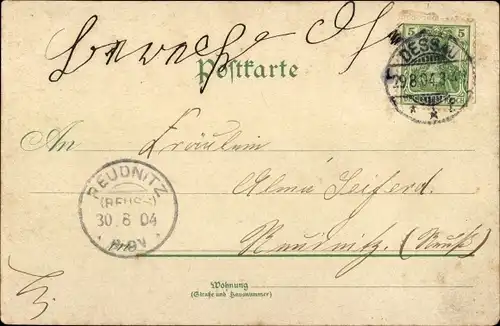 5 5
DESSAU
29.8.04.
Postkarte
An Fräulein
Alma Seiferd.
REUDNITZ
(REUSS)
30.8.04
Reudnitz. (Reuß)
Wohnung
(Straße und Hausnummer)